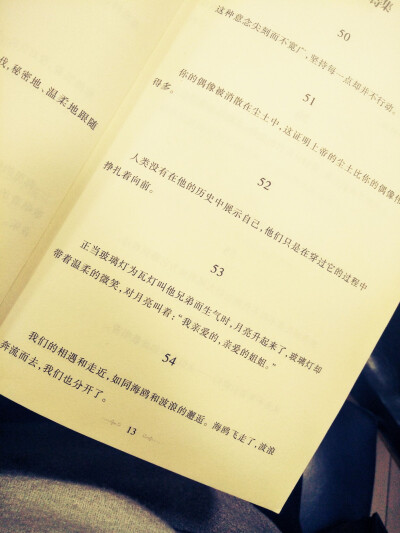 我,秘密地、温柔地跟随
诗集
50
这种意念尖刻而不宽广,坚持每一点却并不行动。
51
你的偶像被消散在尘土中,这证明上帝的尘土比你的偶像伟
得多。
52
人类没有在他的历史中展示自己,他们只是在穿过它的过程中
挣扎着向前。
53
正当玻璃灯为瓦灯叫他兄弟而生气时,月亮升起来了,玻璃灯却
带着温柔的微笑,对月亮叫着:“我亲爱的,亲爱的姐姐。”
54
我们的相遇和走近,如同海鸥和波浪的邂逅。海鸥飞走了,波浪
奔流而去,我们也分开了。
13